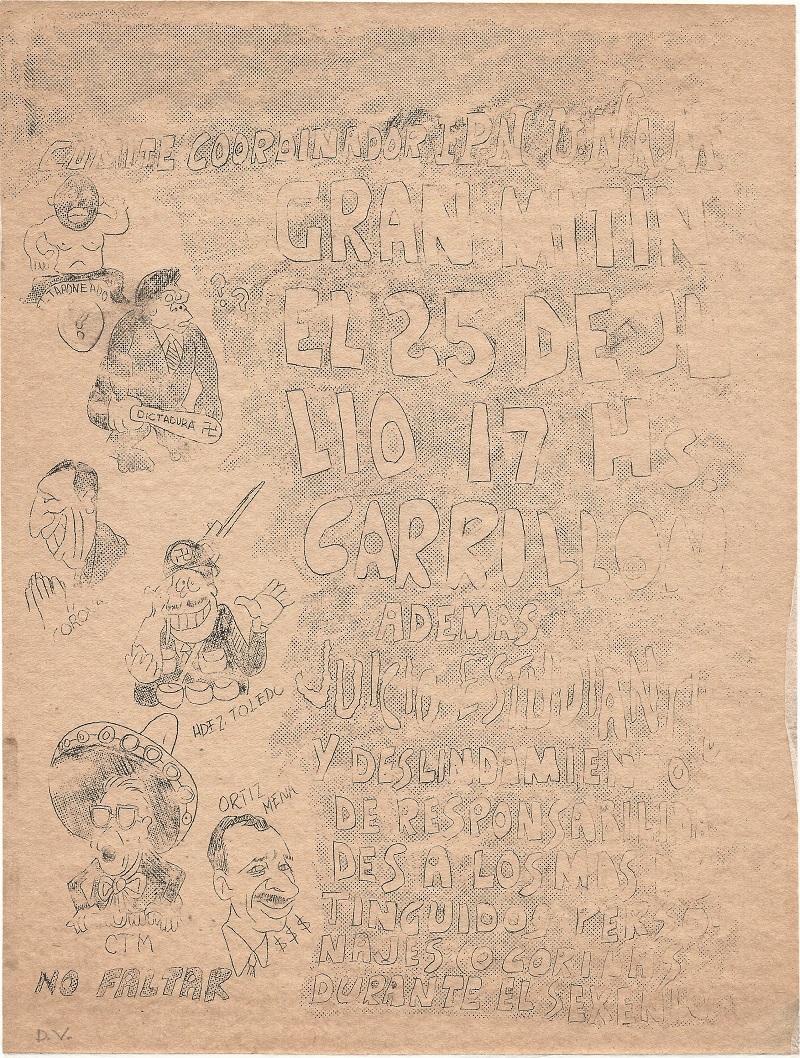 COMITE COORDINADOR IPN UNAM
GRAN MITIN
EL 25 DE JU
LIO 17 Hs.
CARRILLON
ADEMAS
JUICIO ESTUDIANTIL
Y DESLINDAMIENTO
DE RESPONSABILIDA
DES A LOS MAS
TINGUIDOS PERSO
NAJES (O GORILAS
DURANTE EL SEXENIO
TAPONEADO
??
DICTADURA
CORONA
HDEZ TOLEDO
ORTIZ
MENA
$$$
CTM
NO FALTAR
D.V.